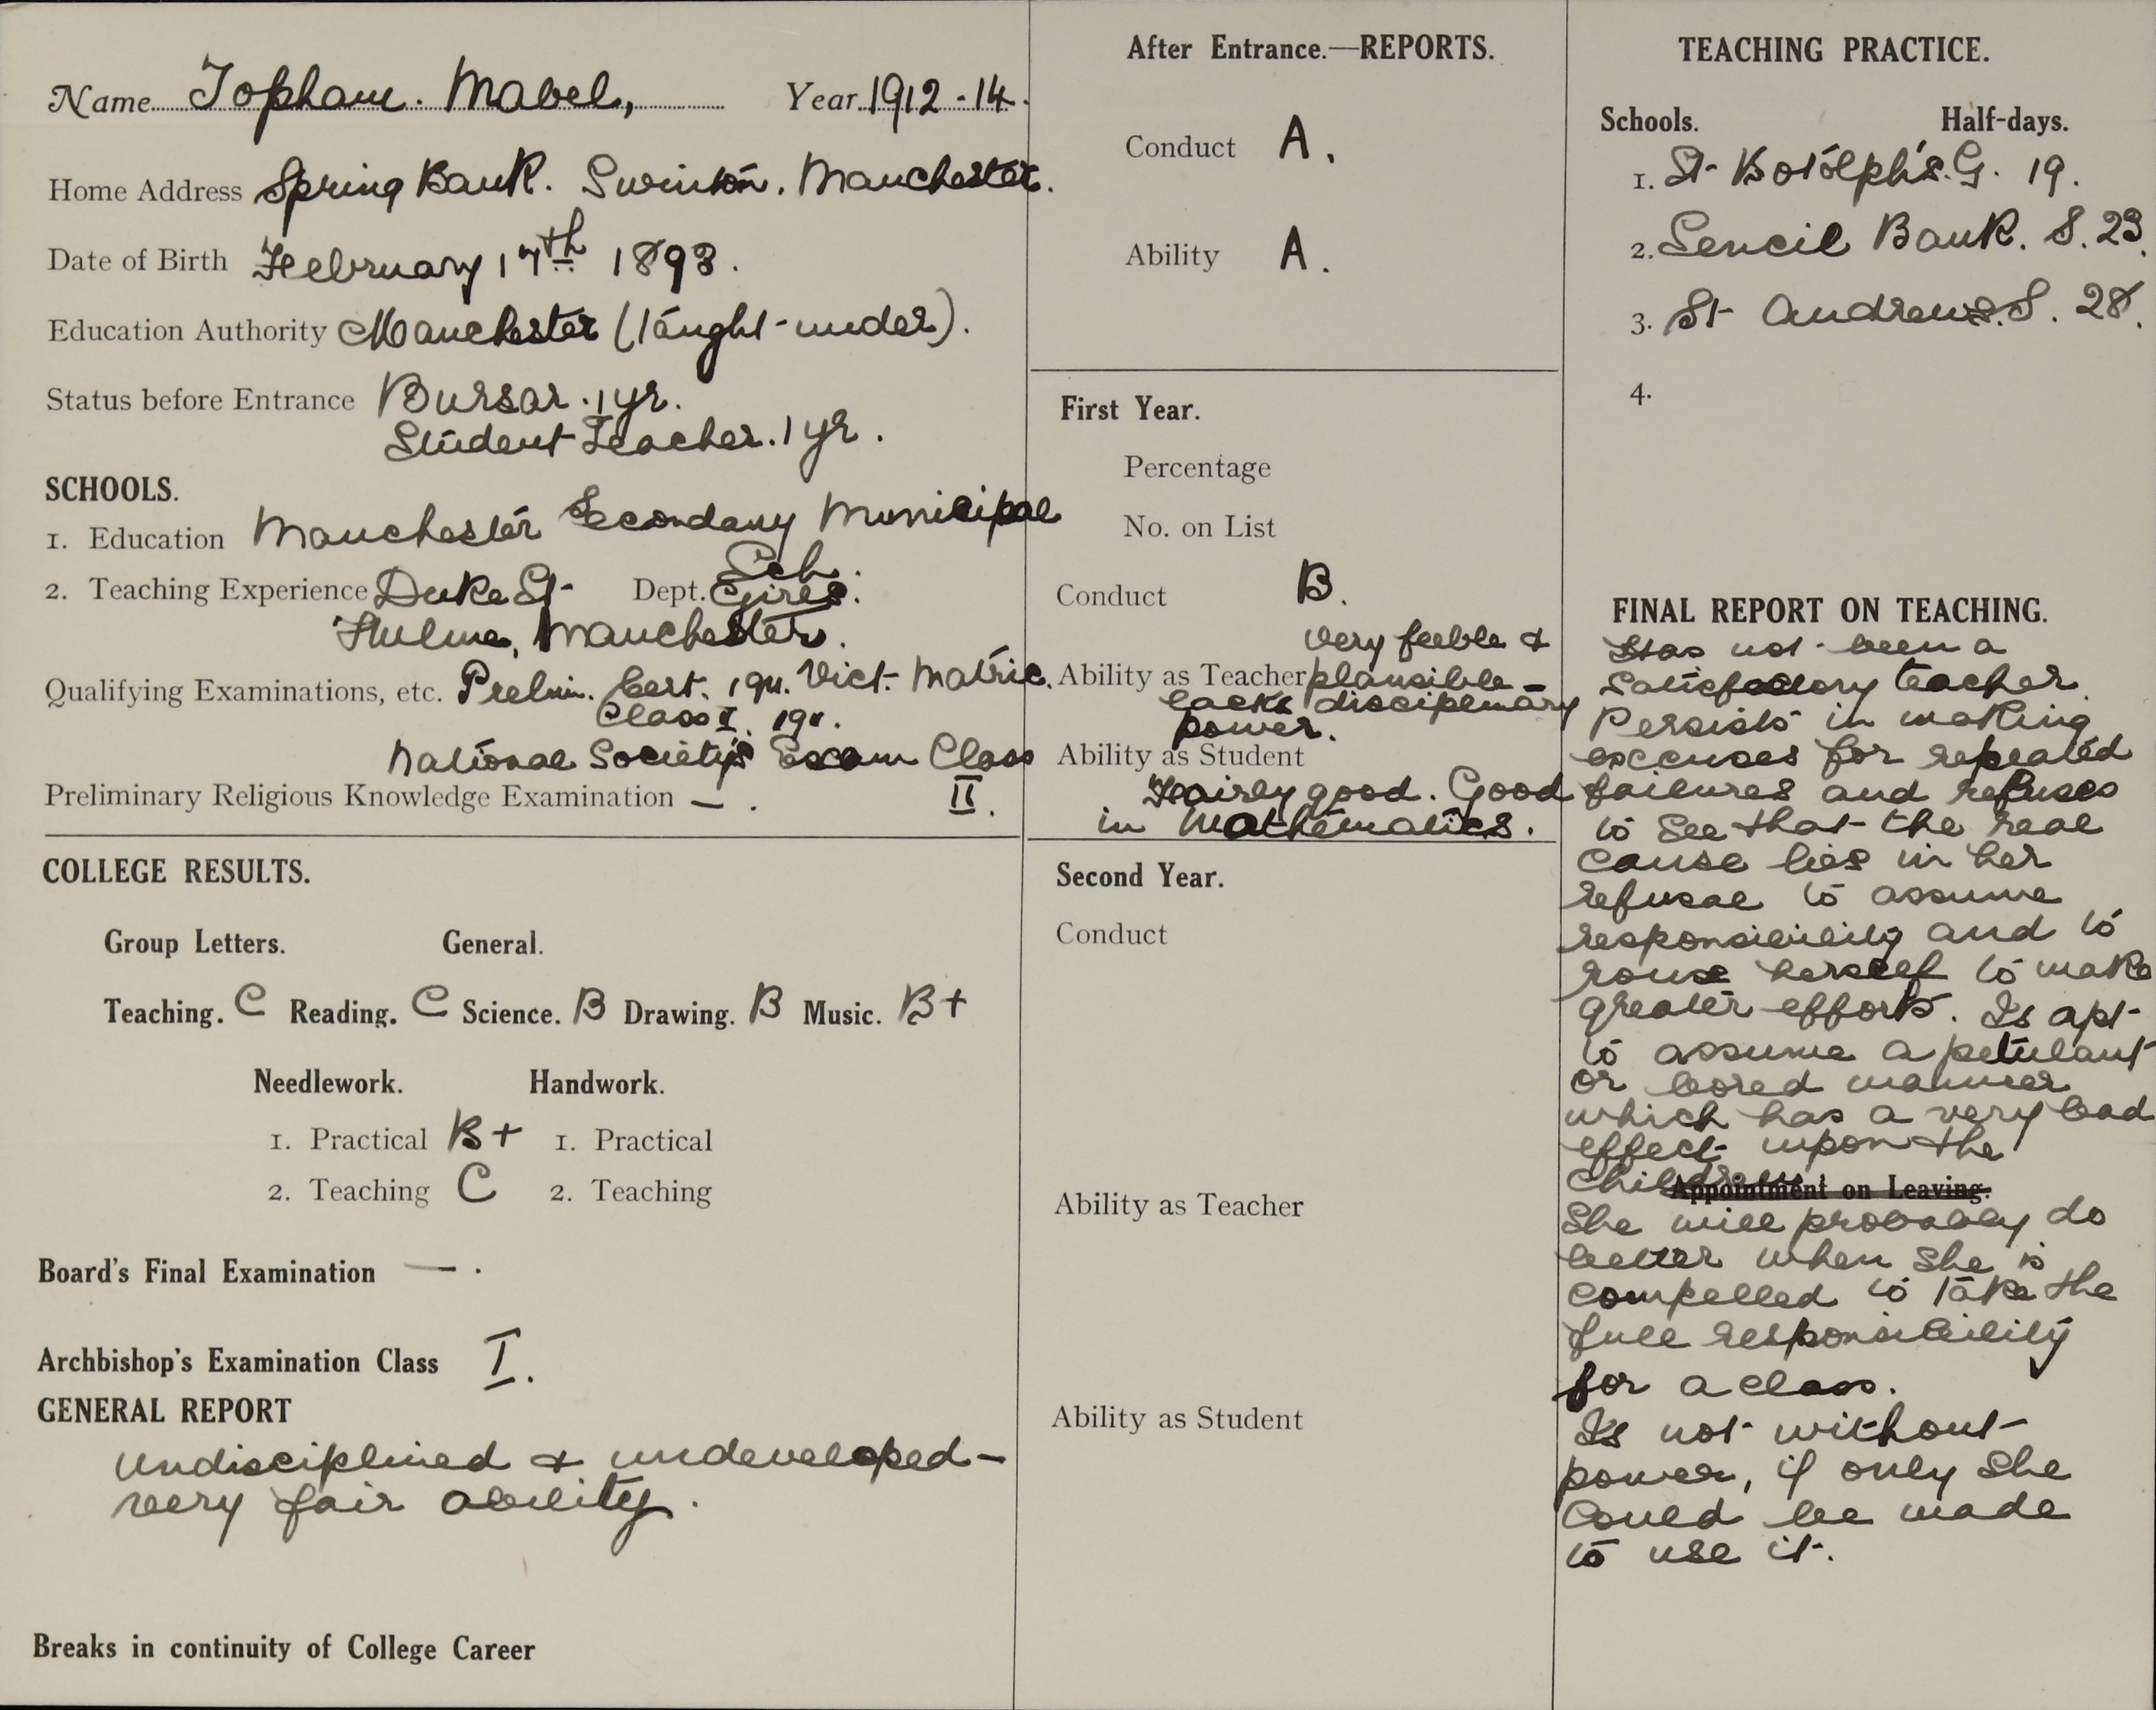 Name Topham. Mabel, Year 1912-14.
Home Address Spring Bank. Swinton. Manchester.
Date of Birth February 17th 1893.
Education Authority Manchester (taught-under).
Status before Entrance Bursar. 1 yr.
Student Teacher. 1 yr.
SCHOOLS.
1. Education Manchester Secondary Municipal
Sch.
2. Teaching Experience Duke St. Dept. Girls.
Hulme, Manchester.
Qualifying Examinations, etc. Prelim. Cert. 1911. Vict. Matric.
Class I. 1911.
National Society's Exam Class
Preliminary Religious Knowledge Examination — . II.
COLLEGE RESULTS.
Group Letters. General.
Teaching. C Reading. C Science. B Drawing. B Music. B+
Needlework. Handwork.
1. Practical B+ 1. Practical
2. Teaching C 2. Teaching
Board's Final Examination — .
Archbishop's Examination Class I.
GENERAL REPORT
undisciplined & undeveloped -
very fair ability.
Breaks in continuity of College Career
After Entrance.—REPORTS.
Conduct A.
Ability A.
First Year.
Percentage
No. on List
Conduct B.
very feeble &
Ability as Teacher plausible -
lacks disciplinary
power.
Ability as Student
Fairly good. Good
in Mathematics.
Second Year.
Conduct
Ability as Teacher
Ability as Student
TEACHING PRACTICE.
Schools. Half-days.
1. St Botolph's. G. 19.
2. Sencil Bank. S. 23.
3. St Andrews. S. 28.
4.
FINAL REPORT ON TEACHING.
Has not been a
satisfactory teacher.
Persists in making
excuses for repeated
failures and refuses
to see that the real
cause lies in her
refusal to assume
responsibility and to
rouse herself to make
greater efforts. Is apt
to assume a petulant
or bored manner
which has a very bad
effect upon the
children.
Appointment on Leaving.
She will probably do
better when she is
compelled to take the
full responsibility
for a class.
Is not without
power, if only she
could be made
to use it.